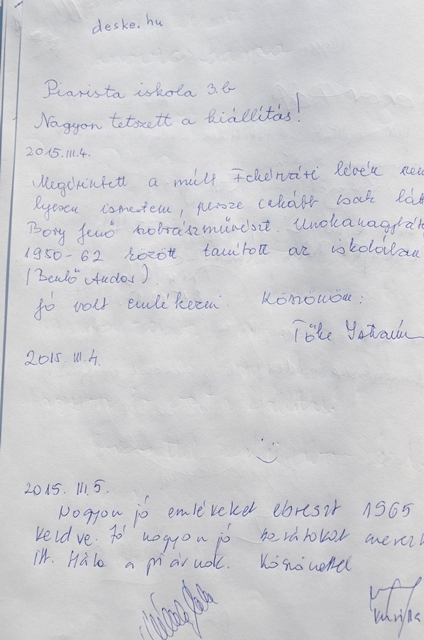 deske.hu
Piarista iskola 3.b
Nagyon tetszett a kiállítás!
2015.III.4.
Megérintett a múlt Fehérvári lévén
ismertem, persze inkább csak
Bory Jenő szobrászművészt. Unokanagybát
1950-62 között tanított az iskolában
(Benkő Andor)
Jó volt emlékezni. Köszönöm:
Tőke István
2015.III.4.
2015.III.5.
Nagyon jó emlékeket ébreszt 1965
kezdve. Jó nagyon jó barátokat
itt. Hála a piárnak. Köszönettel